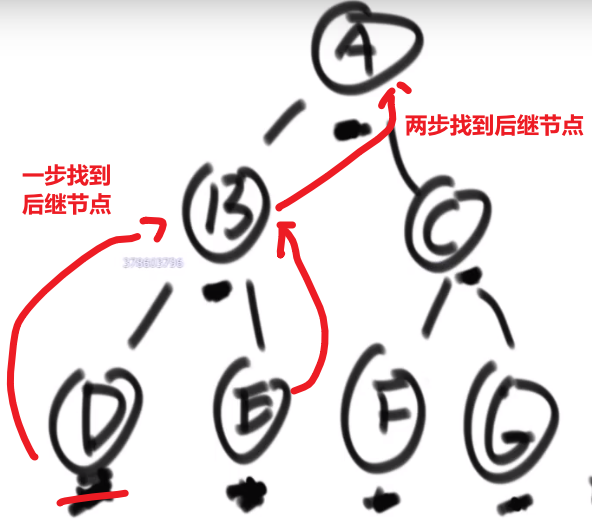 A
两步找到后继节点
一步找到
后继节点
B
C
378603796
D
E
F
G